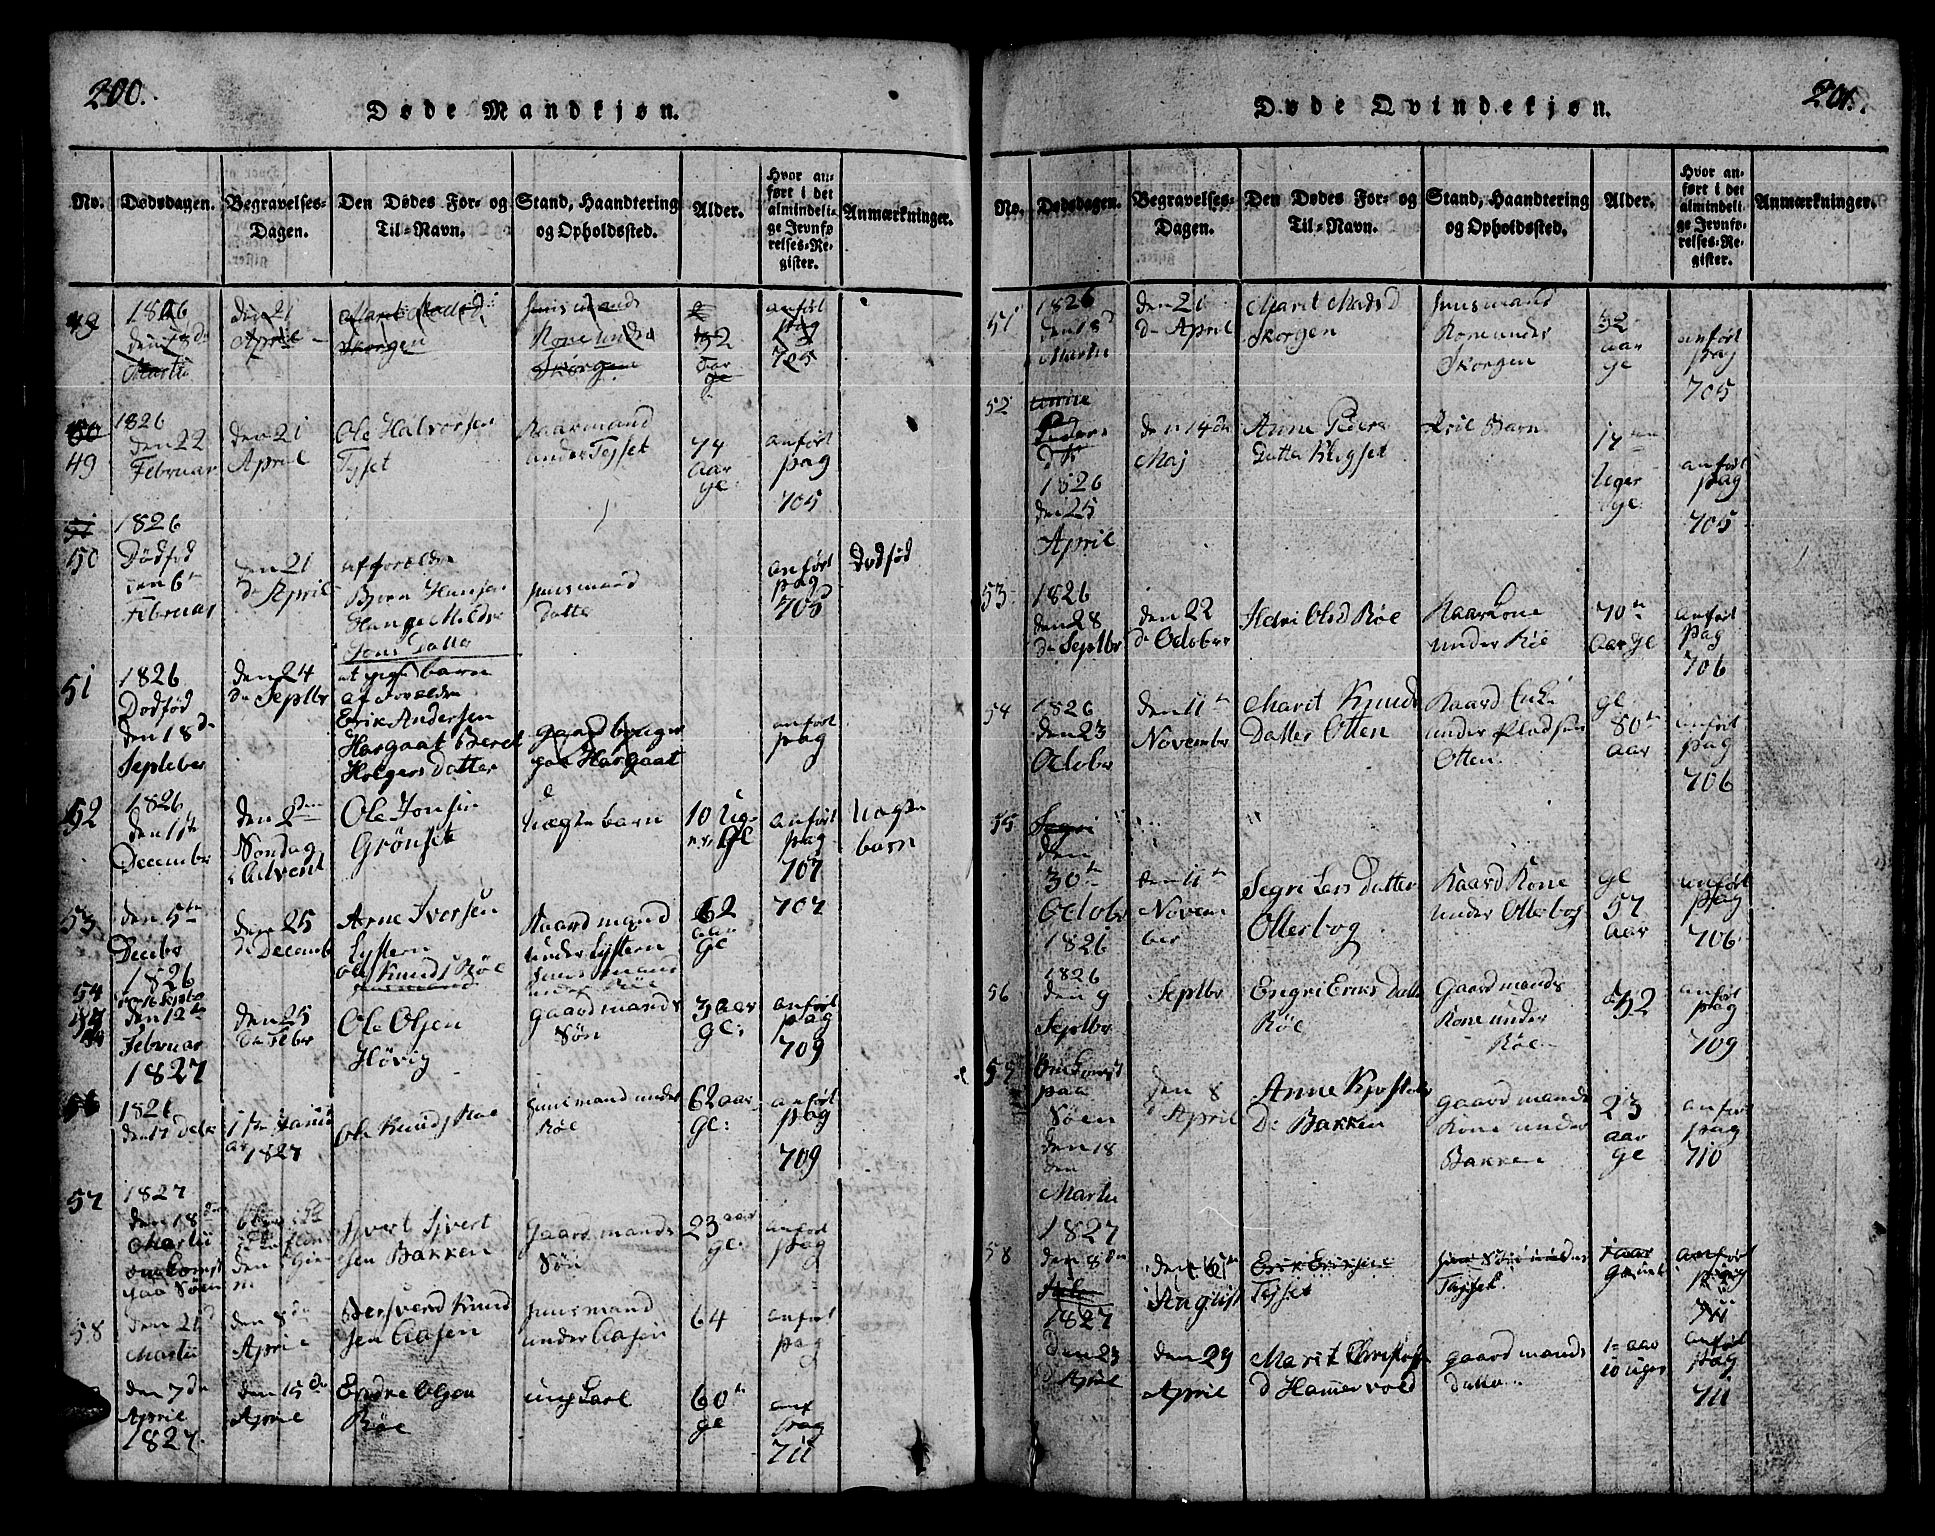 200.
Døde Mandkjøn.
No.
Dødsdagen.
Begravelses-
Dagen.
Den Dødes For- og
Til-Navn.
Stand, Haandtering
og Opholdssted.
Alder.
Hvor an-
ført i det
almindeli-
ge Jevnfø-
relses-Re-
gister.
Anmærkninger.
49
1826
den 18de
Martii
den 21
April
Marit Madsd
Skorgen
Huusmands
Kone under
Skorgen
52
aar
gl
anført
pag
705
50
49
1826
den 22
Februar
den 21
April
Ole Halvorsen
Tysset
Kaarmand
under Tysset
74
aar
gl.
anført
pag
705
51
50
1826
Dødfød
den 6te
Februar
den 21
de April
af forældre
Bjørn Hansen
Jons Datter
Huusmand
anført
pag
705
Dødfød
51
1826
Dødfød
den 18de
Septeber
den 24
de Septbr
et barn
af Forældre
Erik Andersen
Hargaat Beret
Holgers Datter
gaardbruger
paa Hargaat
anført
pag
52
1826
den 1ste
Decembr
den 2den
Søndag
i Advent
Ole Jonsen
Grønset
Uægte barn
10 Uge
gl
anført
pag
707
Uægte
barn
53
den 5te
Decbr
1826
den 25
de Decemb
Arne Iversen
Lystern
Kaardmand
under Lystern
62
aar
gl
707
54
Ole Knuds Røe
Huusmand
under Røe
den 12te
Februar
1827
den 25
de Febr
Ole Olsen
Høvig
gaardmands
Søn
3 aar
gl:
anført
pag
709
56
1826
den 17 Decbr
1827
Ole Knuds Røe
Huusmand under
Røe
62 aar
gl:
anført
pag
709
57
1827
den 18de
Martii
omkomst
paa Søen
Sivert Sivert
sen Bakken
Gaardmands
Søn
23 aar
gl:
anført
pag
58
den 21d
Martii
den 8de
April
Bersvend Knud
sen Aasen
Huusmand
under Aasen
64
anført
pag
den 7de
April
1827.
den 15de
April
Endre Olsen
Røe
ung Karl
60te
gl
anf
pag
711
201.
Døde Qvindekjøn.
No.
Dødsdagen.
Begravelses-
Dagen.
Den Dødes For- og
Til-Navn.
Stand, Haandtering
og Opholdssted.
Alder.
Hvor an-
ført i det
almindeli-
ge Jevnfø-
relses-Re-
gister.
Anmærkninger.
51
1826
den 18d
Martii
den 21
de April
Marit Madsd
Skorgen
Huusmand
Kone under
Skorgen
52
aar
gl
anført
pag
705
52
Anne
Peders
dtr
1826
den 25
April
den 14de
Maj
Anne Peders
Datter Klegset
Barn
17
Uger
gl
anført
pag
705
53
1826
den 28
de Septbr
den 22
de October
Ildri Olsd Røe
Kaarkone
under Røe
70te
aar gl
anført
pag
706
54
1826
den 23
Octobr
den 11te
Novembr
Marit Knuds
Datter Otten
Kaard Enke
under Pladsen
Otten
gl
80te
aar
anført
pag
706
55
Segri
den
30te
Octobr
1826
den 11te
Novem
ber
Segri Lars Datter
Otterbog
Kaard Kone
under Otterbog
gl
57
aar
anført
pag
706
56
1826
den 9
Septbr
Septbr
Engri Eriks Datter
Røe
Gaardmands
Kone under
Røe
52
anført
pag
709
57
Omkomst
paa
Søen
den 18
den
Martii
1827
den 8
de April
Anne Kristofer
D: Bakken
gaardmands
Kone under
Bakken
23
aar
gl
anført
pag
710
58
den 8de
Julii
1827
August
Erik Eriksen
Tysset
Tysset
1 aar
gamel
anført
pag
711
den 23
April
den 29
April
Marit Christofer
d Hammervold
gaardmands
datter
1 aar
10 Uger
anført
pag
711